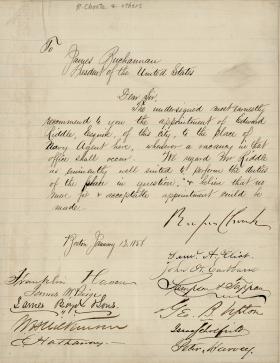 R. Choate & others
To
James Buchannan
President of the United States
Dear Sir,
The undersigned most earnestly
recommend to you the appointment of Edward
Riddle, Esquire, of this city, to the place of
Navy Agent here, whenever a vacancy in that
office shall occur. We regard Mr Riddle
as eminently well suited to perform the duties
of the place in question, & believe that no
more fit & acceptable appointment could be
made.
Rufus Choate
Boston January 13. 1858
Saml. A. Eliot
Franklin Haven
James
Sons
Geo. B. Upton
Peter Harvey